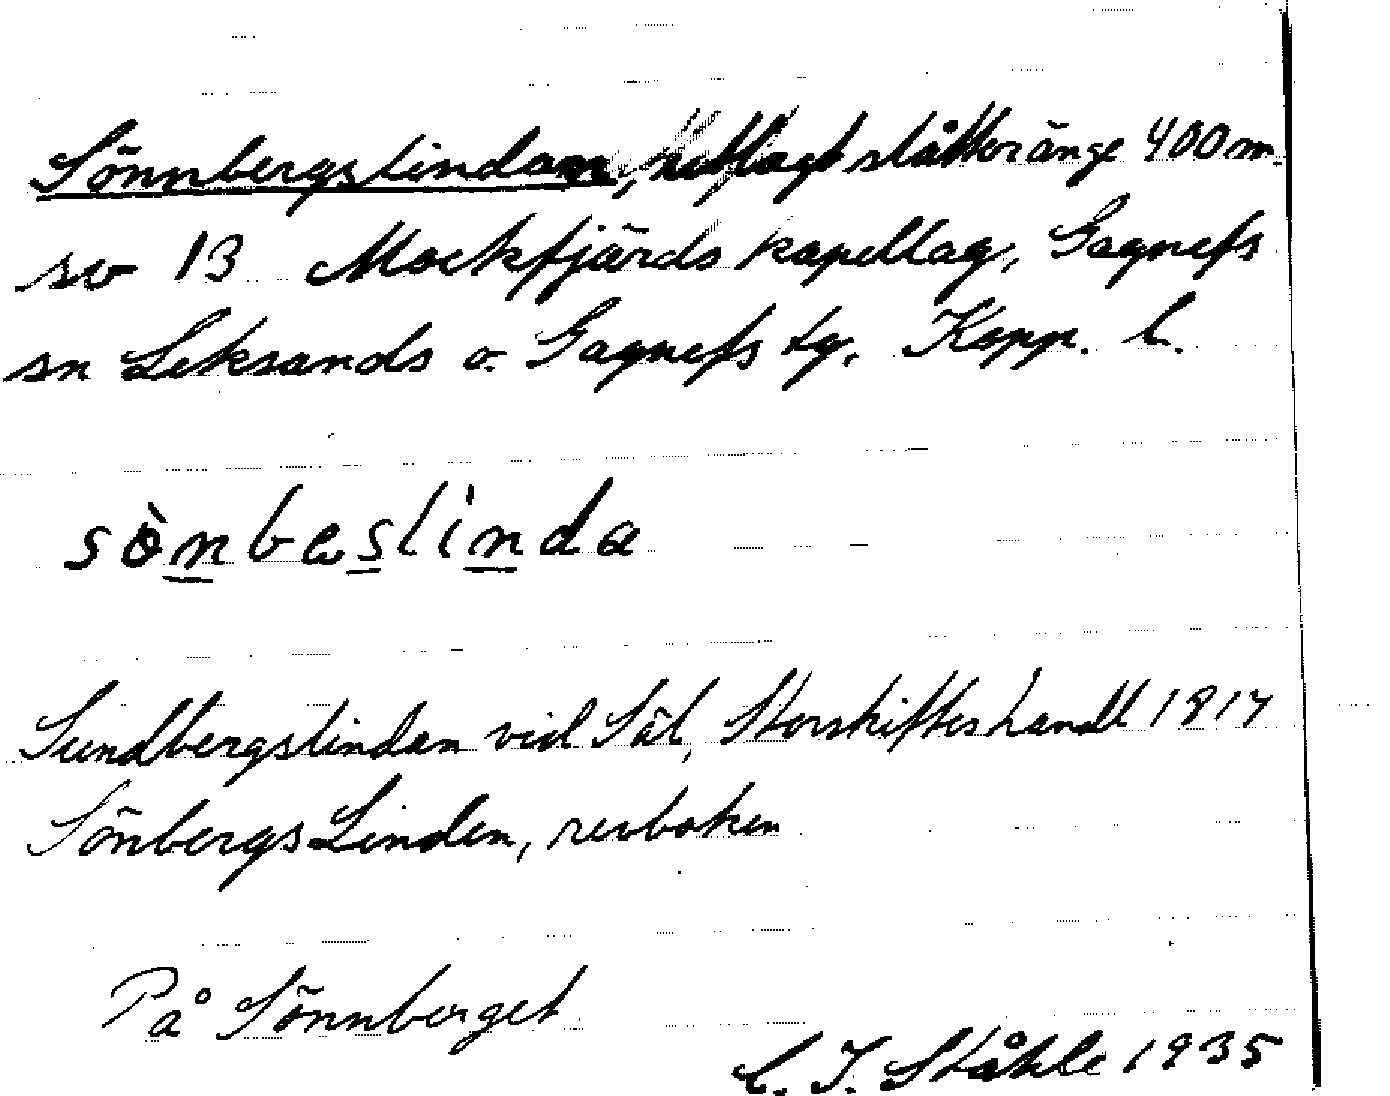 Sönnbergslindan, nedlagt slåtteränge 400 m
sv 13 Mockfjärds kapellag, Gagnefs
sn Leksands o. Gagnefs tg, Kopp. l.
sònbeslinda
Sundbergslindan vid Säl, Storskifteshandl 1817
Sönbergs Linden, revboken
På Sönnberget
C. I. Ståhle 1935